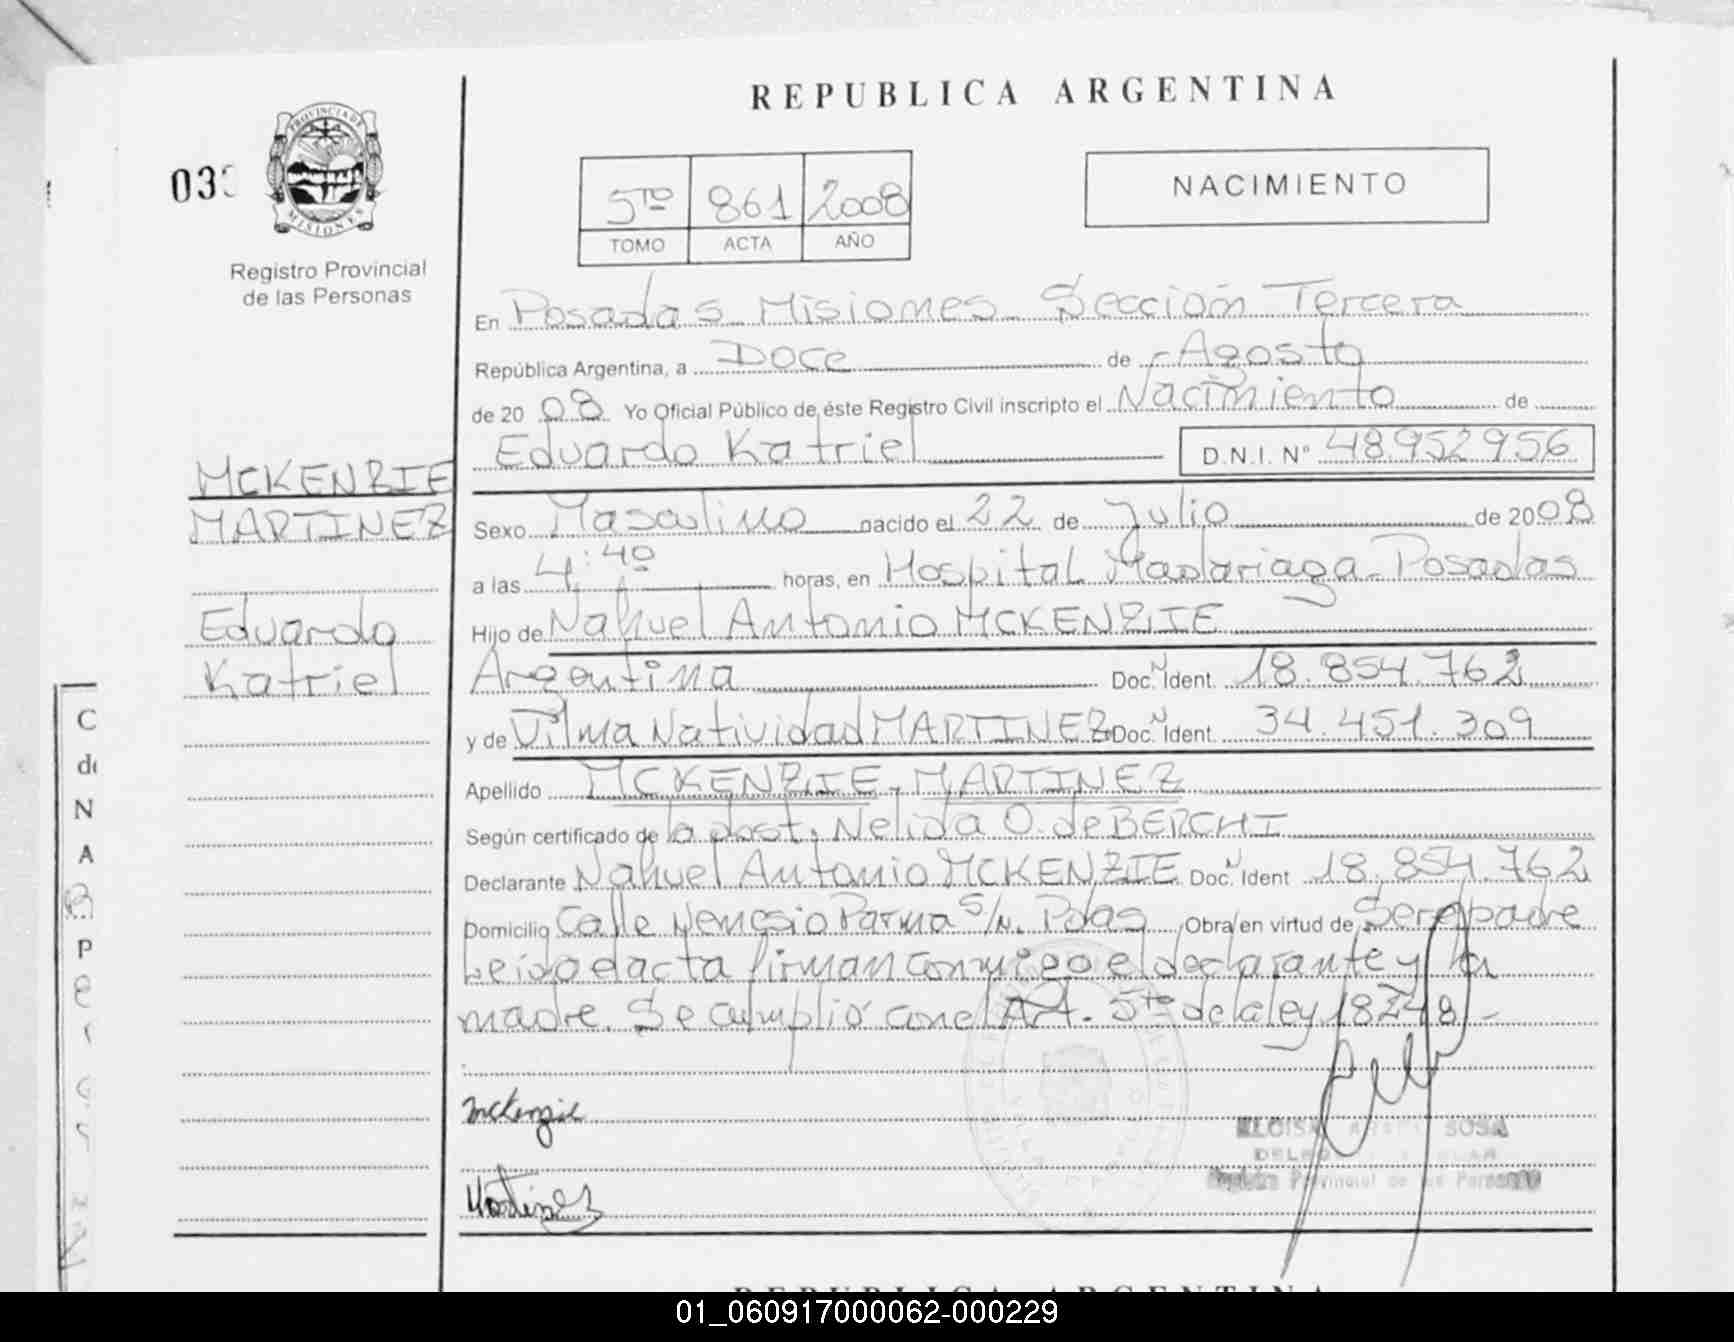 REPUBLICA ARGENTINA
PROVINCIA DE
MISIONES
03
Registro Provincial
de las Personas
5to 861 2008
TOMO ACTA AÑO
NACIMIENTO
En Posadas Misiones Sección Tercera
República Argentina, a Doce de Agosto
de 2008 Yo Oficial Público de éste Registro Civil inscripto el Nacimiento de
Eduardo Katriel D.N.I. Nº 48.952956
MCKENZIE
MARTINEZ
Eduardo
Katriel
Sexo Masculino nacido el 22 de Julio de 2008
a las 4:40 horas, en Hospital Madariaga - Posadas
Hijo de Nahuel Antonio MCKENZIE
Argentina Doc. Ident. 18.854.762
y de Vilma Natividad MARTINEZ Doc. Ident. 34.451.309
Apellido MCKENZIE - MARTINEZ
Según certificado de la obst. Nelida O. de BERCHI
Declarante Nahuel Antonio MCKENZIE Doc. Ident 18.854.762
Domicilio Calle Nemesio Parma S/N. Pdas Obra en virtud de Ser el padre
Leido el acta firman conmigo el declarante y la
madre. Se cumplió con el Art. 5to de la ley 18248 -
Mckenzie
ELOISA SOSA
Provincial de las Personas
Martinez
REPUBLICA ARGENTINA
01_060917000062-000229